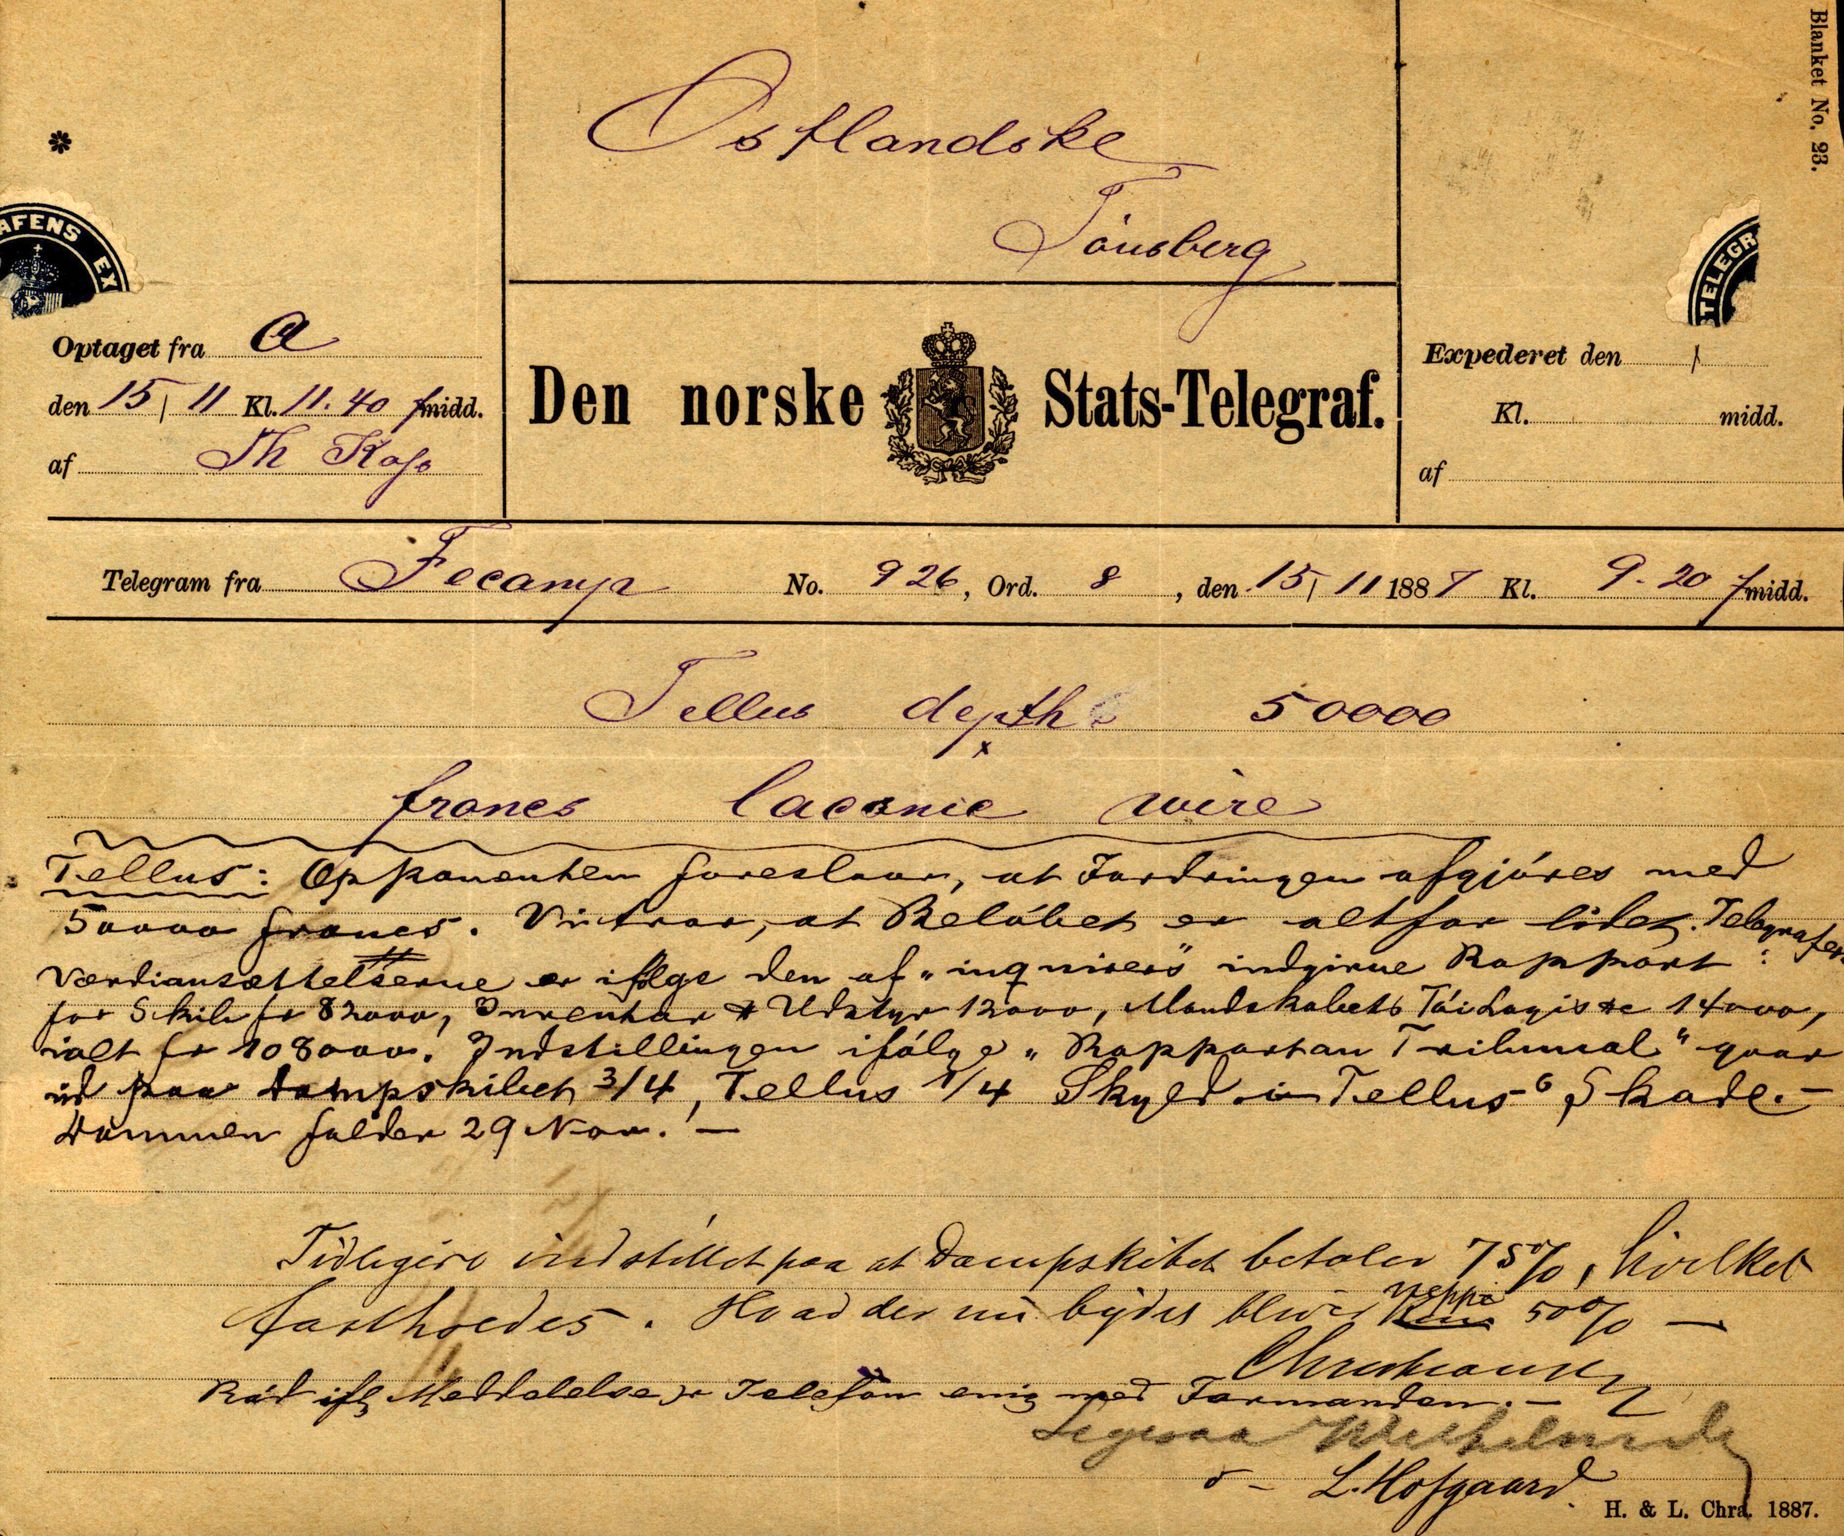 Blanket No. 23.
Ostlandske
Tönsberg
AFENS EX
TELEGR
Optaget fra a
den 15/11 Kl. 11.40 fmidd.
af Th
Den norske Stats-Telegraf.
Expederet den /
Kl. midd.
af
Telegram fra Fecamp No. 926, Ord. 8, den 15/11 1887 Kl. 9.20 fmidd.
Tellus depth 50000
x
francs laconic wire
Tellus: Opponenten foreslaar, at Fordringen afgjöres med
50000 francs. Vi tror, at Belöbet er altfor lidet. Telegrafer.
Værdiansættelserne er ifølge den af "inquirers" indgivne Rapport:
for Skib fr 82000, Inventar & Udstyr 12000, Mandskabets Töi 14000,
ialt fr 108000. Indstillingen ifölge "Rapport au Tribunal" gaar
ud paa Dampskibet 3/4, Tellus 1/4 Skyld i Tellus' Skade.-
Dommen falder 29 Nov. -
Tidligere indstillet paa at Dampskibet betaler 75%, hvilket
fastholdes. Hvad der nu bydes bliver neppe 50% -
Christiansen
Råd ifl Meddelelse pr Telefon enig med Formanden. -
Ligesaa
L. Hofgaard.
H. & L. Chra. 1887.